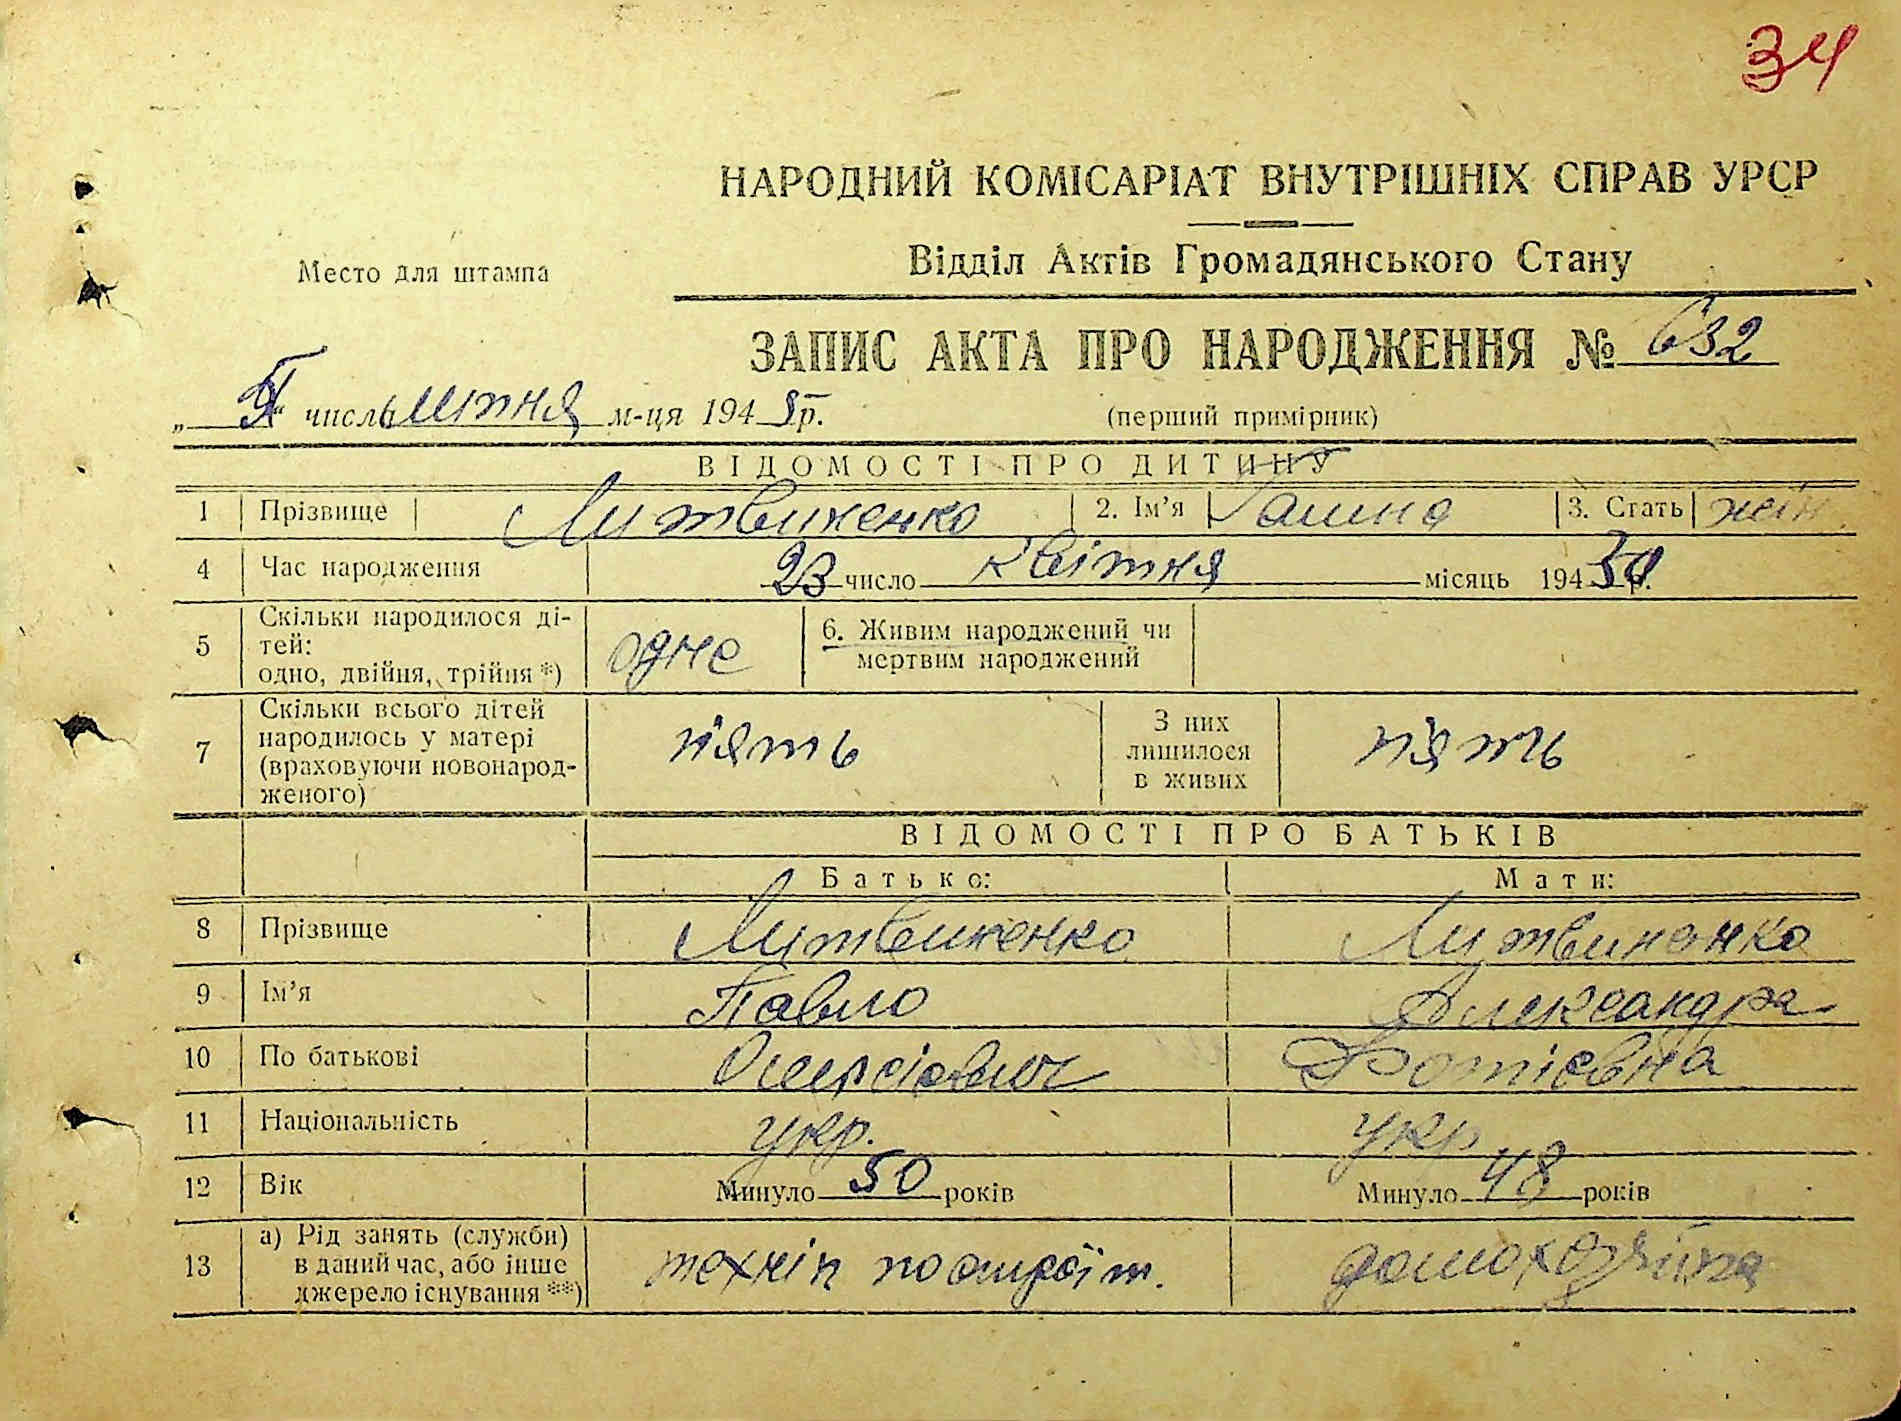 34
НАРОДНИЙ КОМІСАРІАТ ВНУТРІШНІХ СПРАВ УРСР
Відділ Актів Громадянського Стану
Место для штампа
ЗАПИС АКТА ПРО НАРОДЖЕННЯ № 632
(перший примірник)
„ “ число липня м-ця 194 р.
ВІДОМОСТІ ПРО ДИТИНУ
1 Прізвище Литвиненко 2. Ім’я Галина 3. Стать жін.
4 Час народження 23 число квітня місяць 194 30 р.
5 Скільки народилося ді-
тей:
одно, двійня, трійня *) одне
6. Живим народжений чи
мертвим народжений
7 Скільки всього дітей
народилось у матері
(враховуючи новонарод-
женого) п'ять
З них
лишилося
в живих п'ять
ВІДОМОСТІ ПРО БАТЬКІВ
Батько: Мати:
8 Прізвище Литвиненко Литвиненко
9 Ім’я Павло Александра
10 По батькові Фотіевна
11 Національність укр. укр
12 Вік Минуло 50 років Минуло 48 років
13 а) Рід занять (служби)
в даний час, або інше
джерело існування **) технік по домохозяйка